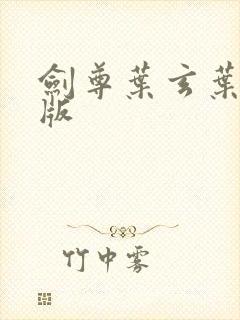 劍尊葉玄葉
版
竹中雾